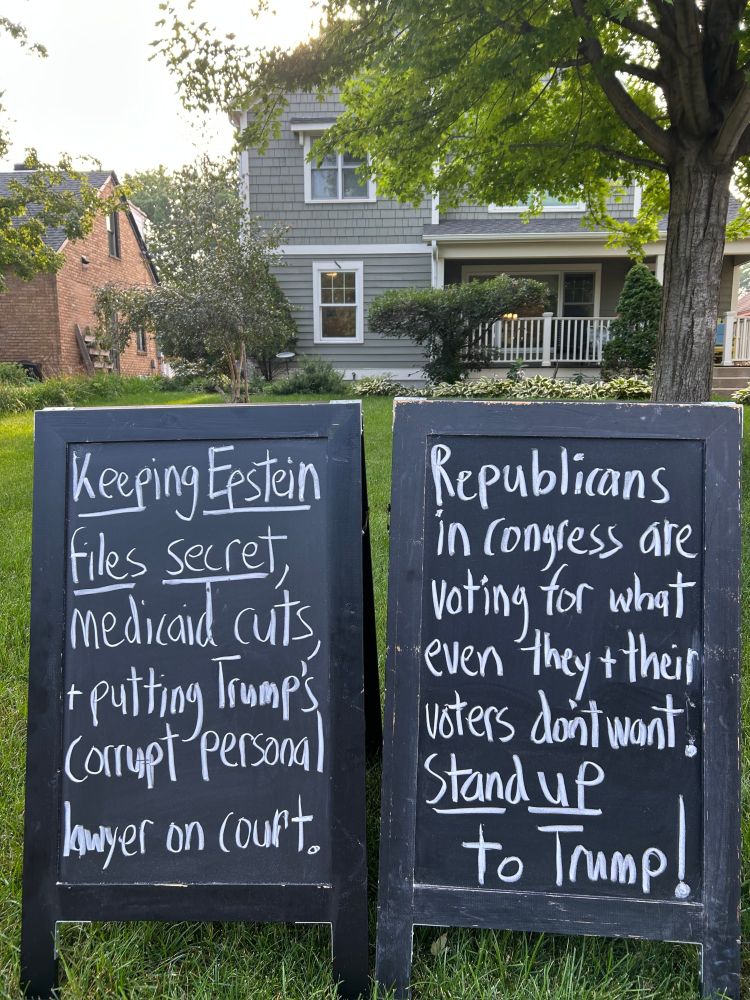 Keeping Epstein
files secret,
medicaid cuts,
+ putting Trump's
corrupt personal
lawyer on court.
Republicans
in Congress are
voting for what
even they + their
voters don't want!
Stand up
to Trump!